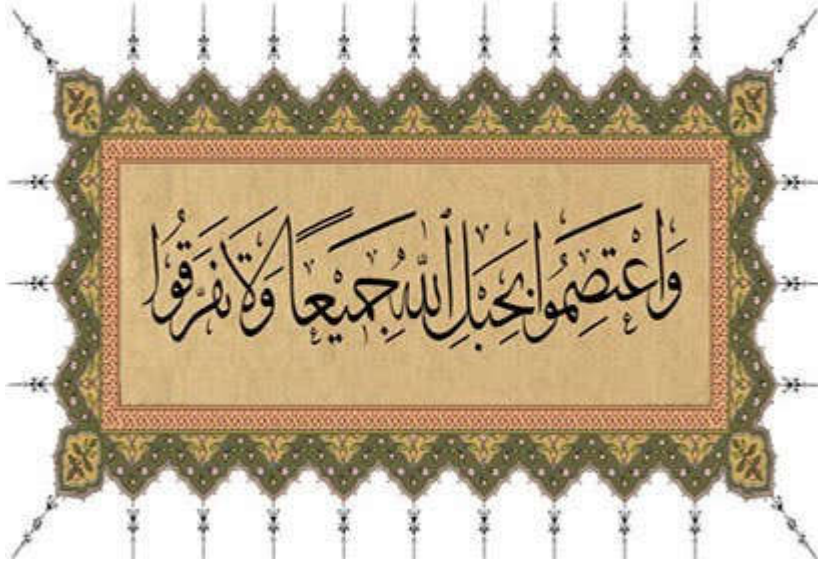 وَاعْتَصِمُوا بِحَبْلِ اللهِ جَمِيْعًا وَلَا تَفَرَّقُوا